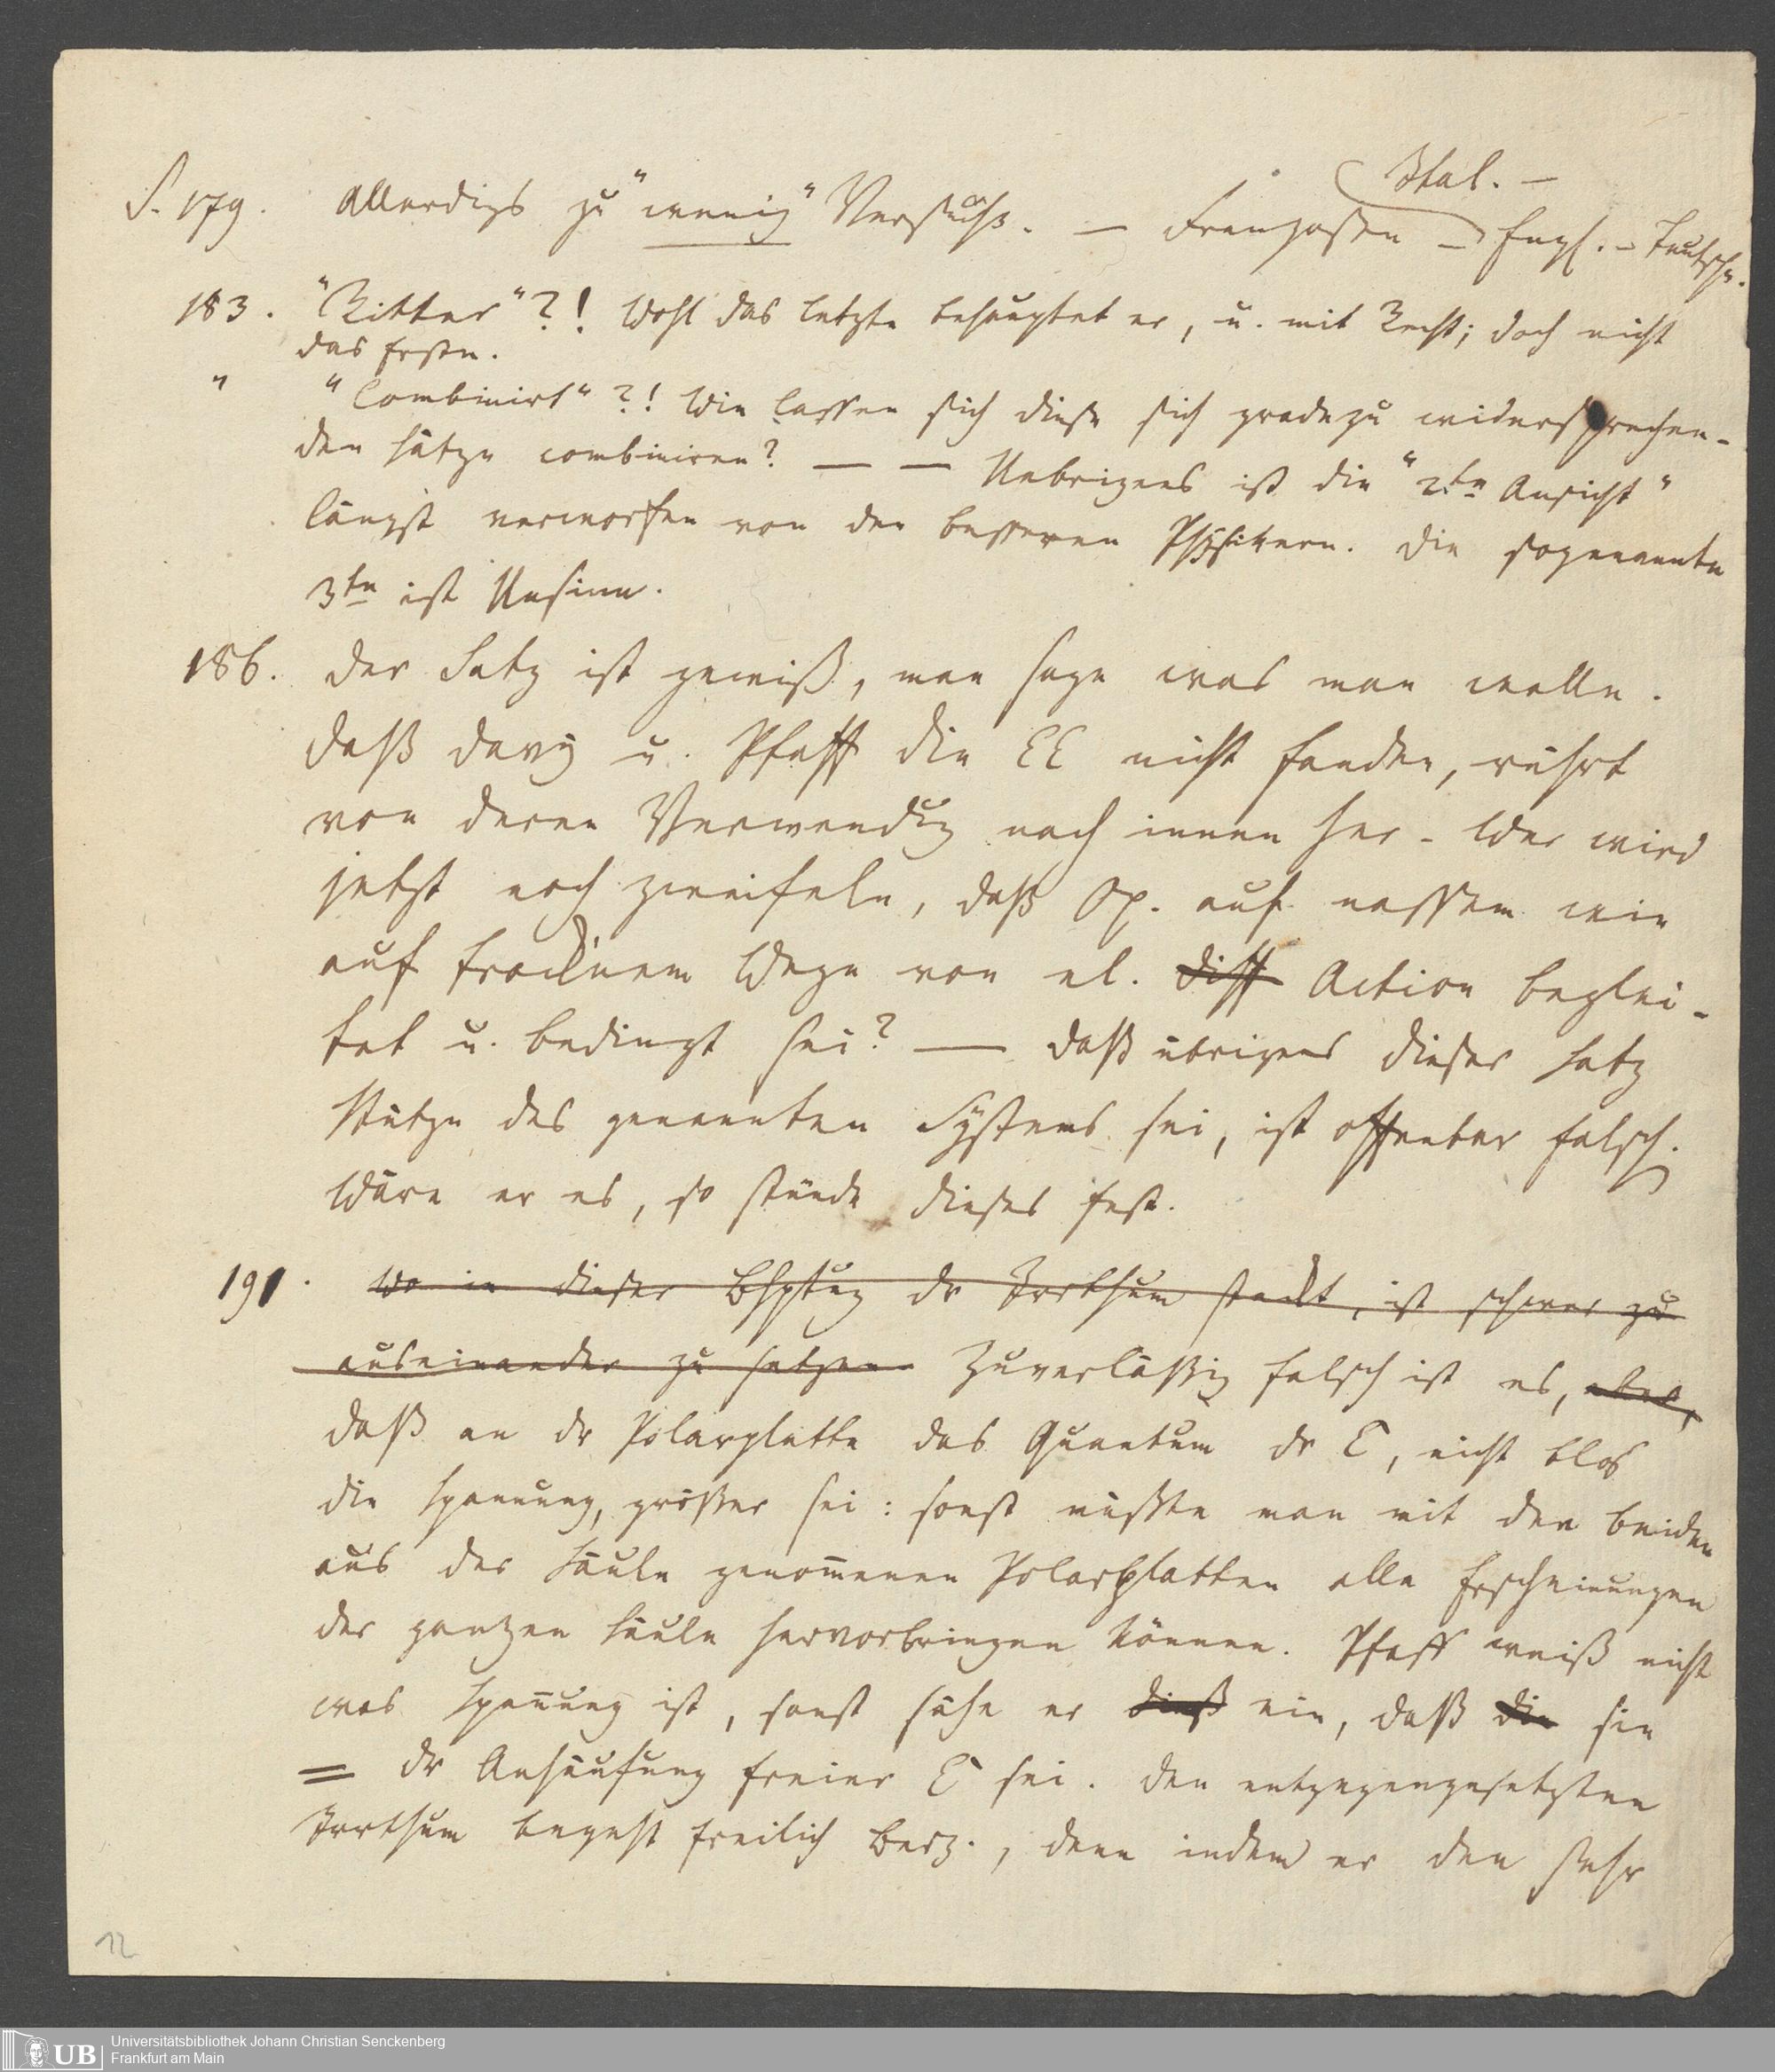 Ital. –
S. 179. Allerdigs zu "wenig" Versuche. — Franzosen – Engl. – Teutsche.
183. "Ritter"?! Wohl das letzte behauptet er, u. mit Recht; doch nicht
das Erste.
" "Combinirt"?! Wie lassen sich diese sich gradezu widersprechen-
den Sätze combiniren? — — Uebrigens ist die "2te Ansicht"
längst verworfen von den besseren Physikern. Die sogenannte
3te ist Unsinn.
186. Der Satz ist gewiß, man sage was man wolle.
Daß Davy u. Pfaff die EE nicht fanden, rührt
von deren Verwendug nach innen her – Wer wird
jetzt noch zweifeln, daß Op. auf nassem wie
auf trocknem Wege von el. diff Action beglei-
tet u. bedingt sei? — Daß übrigens dieser Satz
Stütze des genannten Systems sei, ist offenbar falsch.
Wäre er es, so stünde dieses fest.
191. Wo in dieser Bhptug dr Irrthum steckt, ist schwer zu
auseinander zu setzen Zuverläßig falsch ist es, aber,
daß an dr Polarplatte das Quantum dr E, nicht blos
die Spannung, größer sei: sonst müßte man mit den beiden
aus der Säule genom̅enen Polarplatten alle Erscheinungen
der ganzen Säule hervorbringen können. Pfaff weiß nicht
was Span̅ung ist, sonst sähe er dieß ein, daß die sie
= dr Anhäufung freier E sei. Den entgegengesetzten
Irrthum begeht freilich Berz., denn indem er den sehr
12
Universitätsbibliothek Johann Christian Senckenberg
Frankfurt am Main
UB